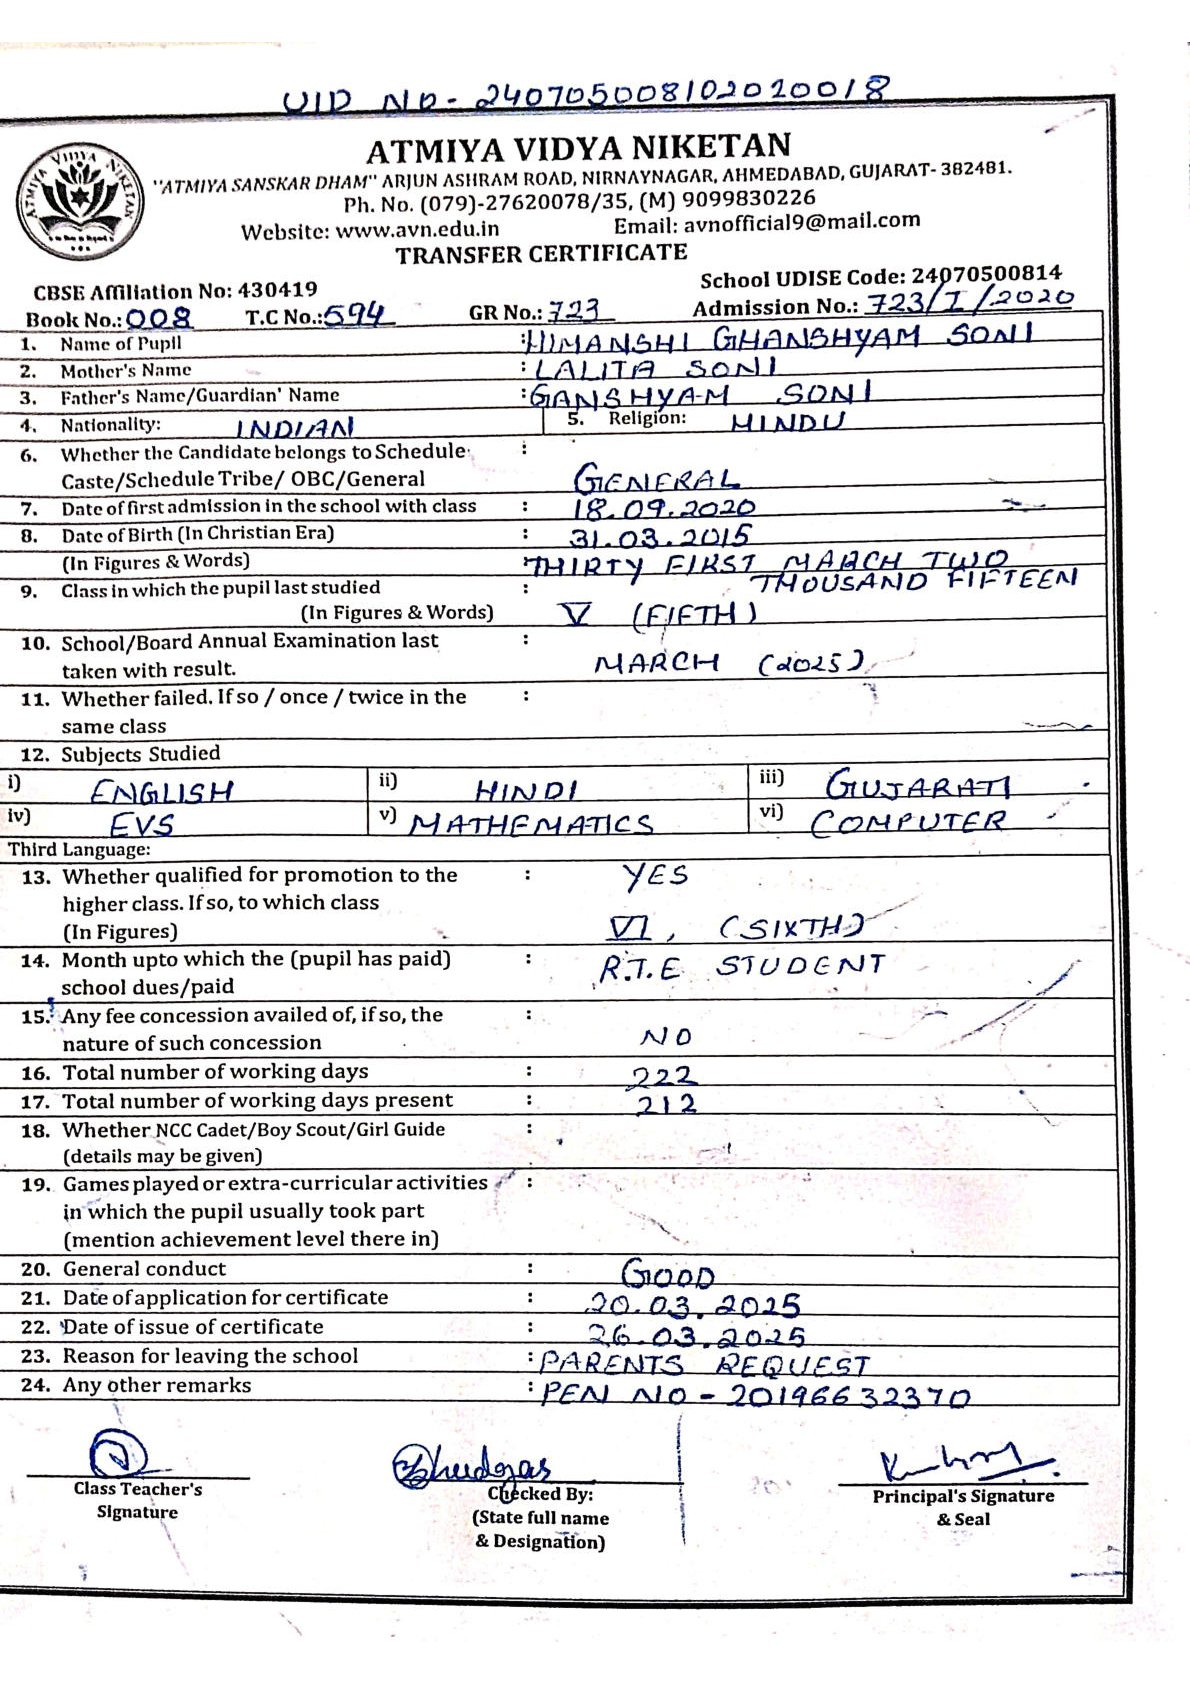 UID NO- 240705008102020018
ATMIYA VIDYA NIKETAN
"ATMIYA SANSKAR DHAM" ARJUN ASHRAM ROAD, NIRNAYNAGAR, AHMEDABAD, GUJARAT- 382481.
Ph. No. (079)-27620078/35, (M) 9099830226
Website: www.avn.edu.in Email: avnofficial9@mail.com
TRANSFER CERTIFICATE
ATMIYA VIDYA NIKETAN
CBSE Affiliation No: 430419 School UDISE Code: 24070500814
Book No.: 008 T.C No.: 594 GR No.: 723 Admission No.: 723/I/2020
1. Name of Pupil : HIMANSHI GHANSHYAM SONI
2. Mother's Name : LALITA SONI
3. Father's Name/Guardian' Name : GANSHYAM SONI
4. Nationality: INDIAN 5. Religion: HINDU
6. Whether the Candidate belongs to Schedule :
Caste/Schedule Tribe/ OBC/General GENERAL
7. Date of first admission in the school with class : 18.09.2020
8. Date of Birth (In Christian Era) : 31.03.2015
(In Figures & Words) THIRTY FIRST MARCH TWO
THOUSAND FIFTEEN
9. Class in which the pupil last studied :
(In Figures & Words) V (FIFTH)
10. School/Board Annual Examination last :
taken with result. MARCH (2025)
11. Whether failed. If so / once / twice in the :
same class
12. Subjects Studied
i) ENGLISH ii) HINDI iii) GUJARATI
iv) EVS v) MATHEMATICS vi) COMPUTER
Third Language:
13. Whether qualified for promotion to the : YES
higher class. If so, to which class
(In Figures) VI, (SIXTH)
14. Month upto which the (pupil has paid) : R.T.E STUDENT
school dues/paid
15. Any fee concession availed of, if so, the :
nature of such concession NO
16. Total number of working days : 222
17. Total number of working days present : 212
18. Whether NCC Cadet/Boy Scout/Girl Guide :
(details may be given)
19. Games played or extra-curricular activities :
in which the pupil usually took part
(mention achievement level there in)
20. General conduct : GOOD
21. Date of application for certificate : 20.03.2025
22. Date of issue of certificate : 26.03.2025
23. Reason for leaving the school : PARENTS REQUEST
24. Any other remarks : PEN NO - 20196632370
Class Teacher's Checked By: Principal's Signature
Signature (State full name & Seal
& Designation)